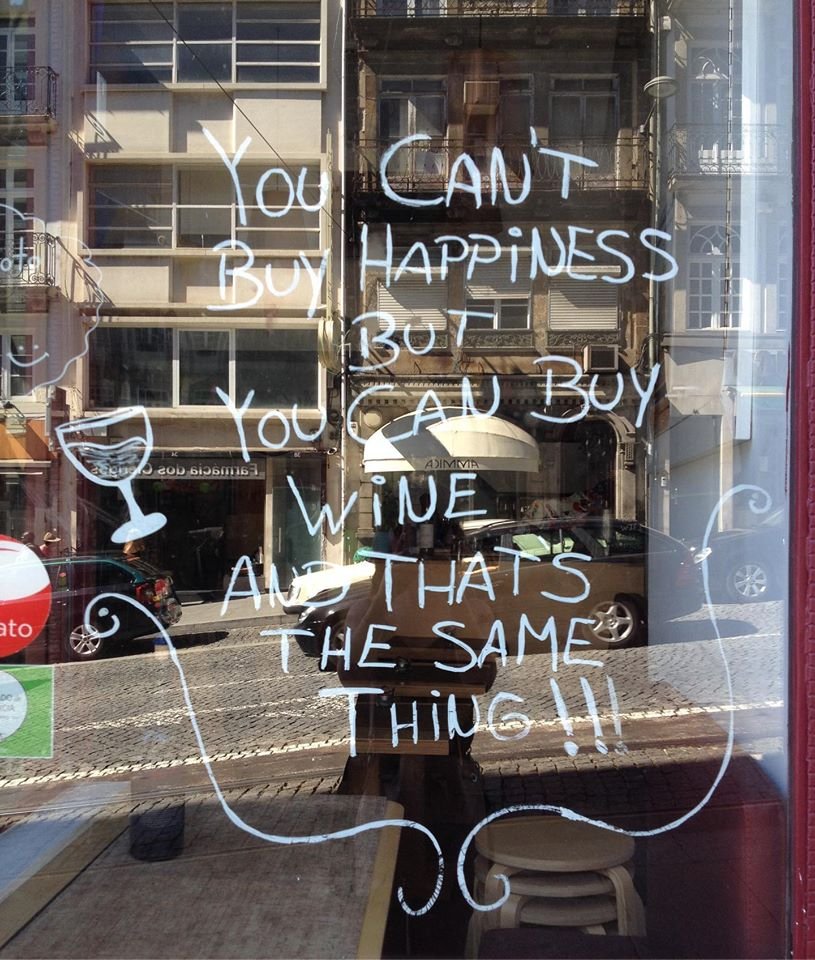 You CAN'T
Buy HAPPiNESS
BUT
You CAN BUY
WiNE
AND THAT'S
THE SAME
THiNG!!!
Farmácia dos Clérigos
ato